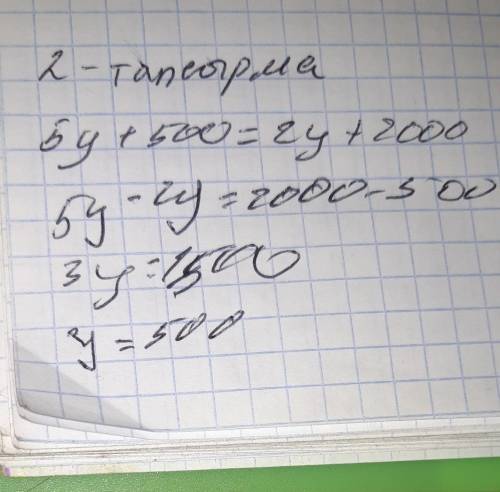 2 - тапсырма
5y + 500 = 2y + 2000
5y - 2y = 2000 - 500
3y = 1500
y = 500